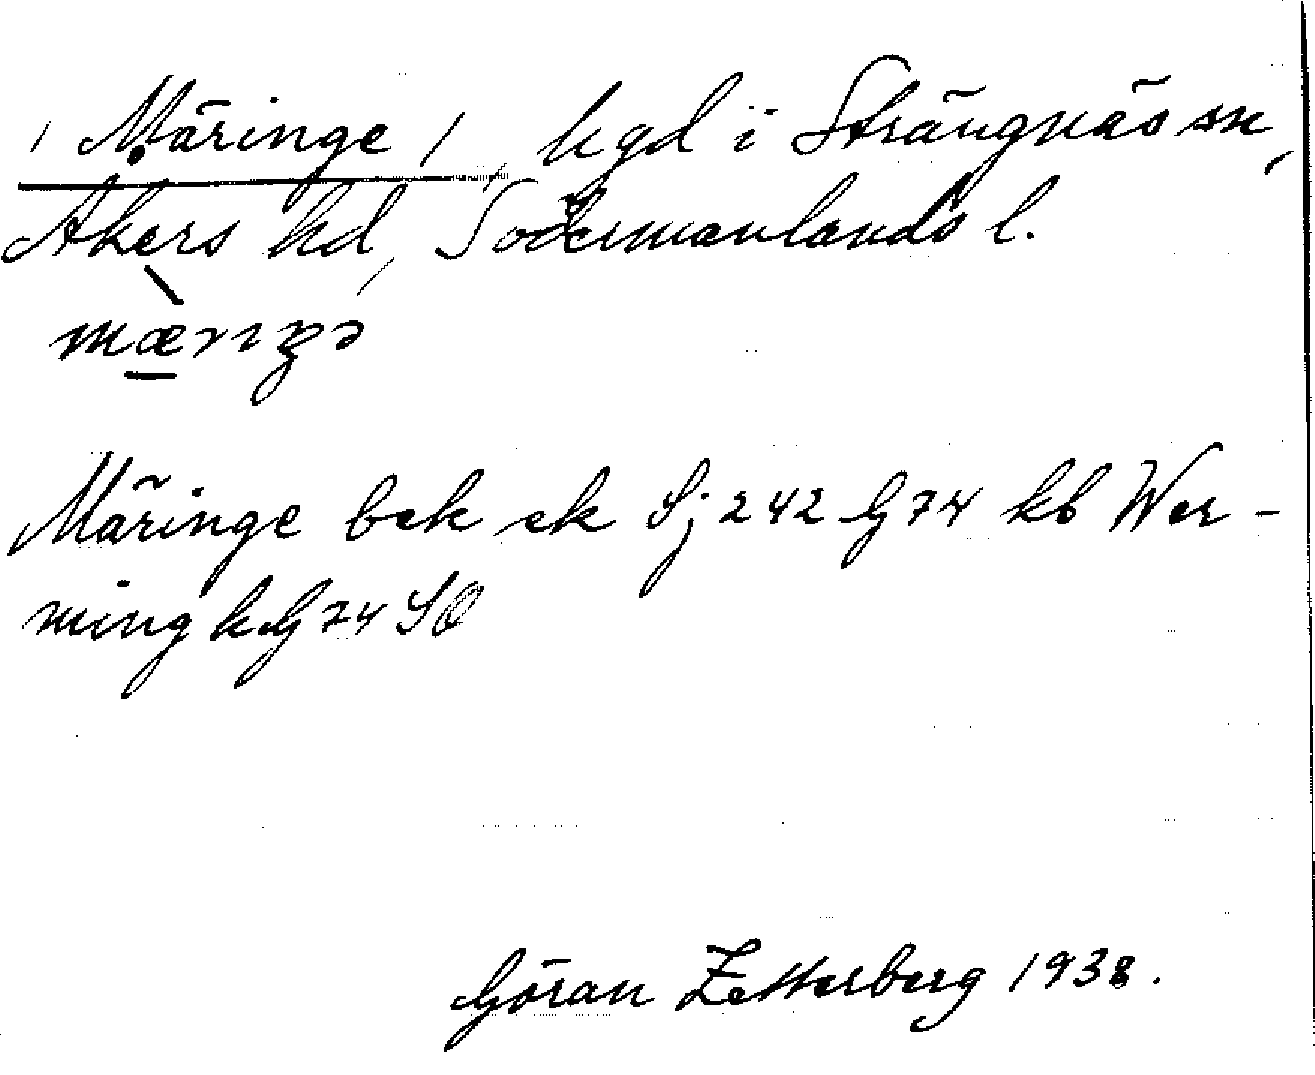 Märinge, hgd i Strängnäs sn,
Åkers hd, Södermanlands l.
mæriŋə
Märinge bek ek Sj 242 G 74 kb Wer-
ning k G 74 SO
Göran Zetterberg 1938.